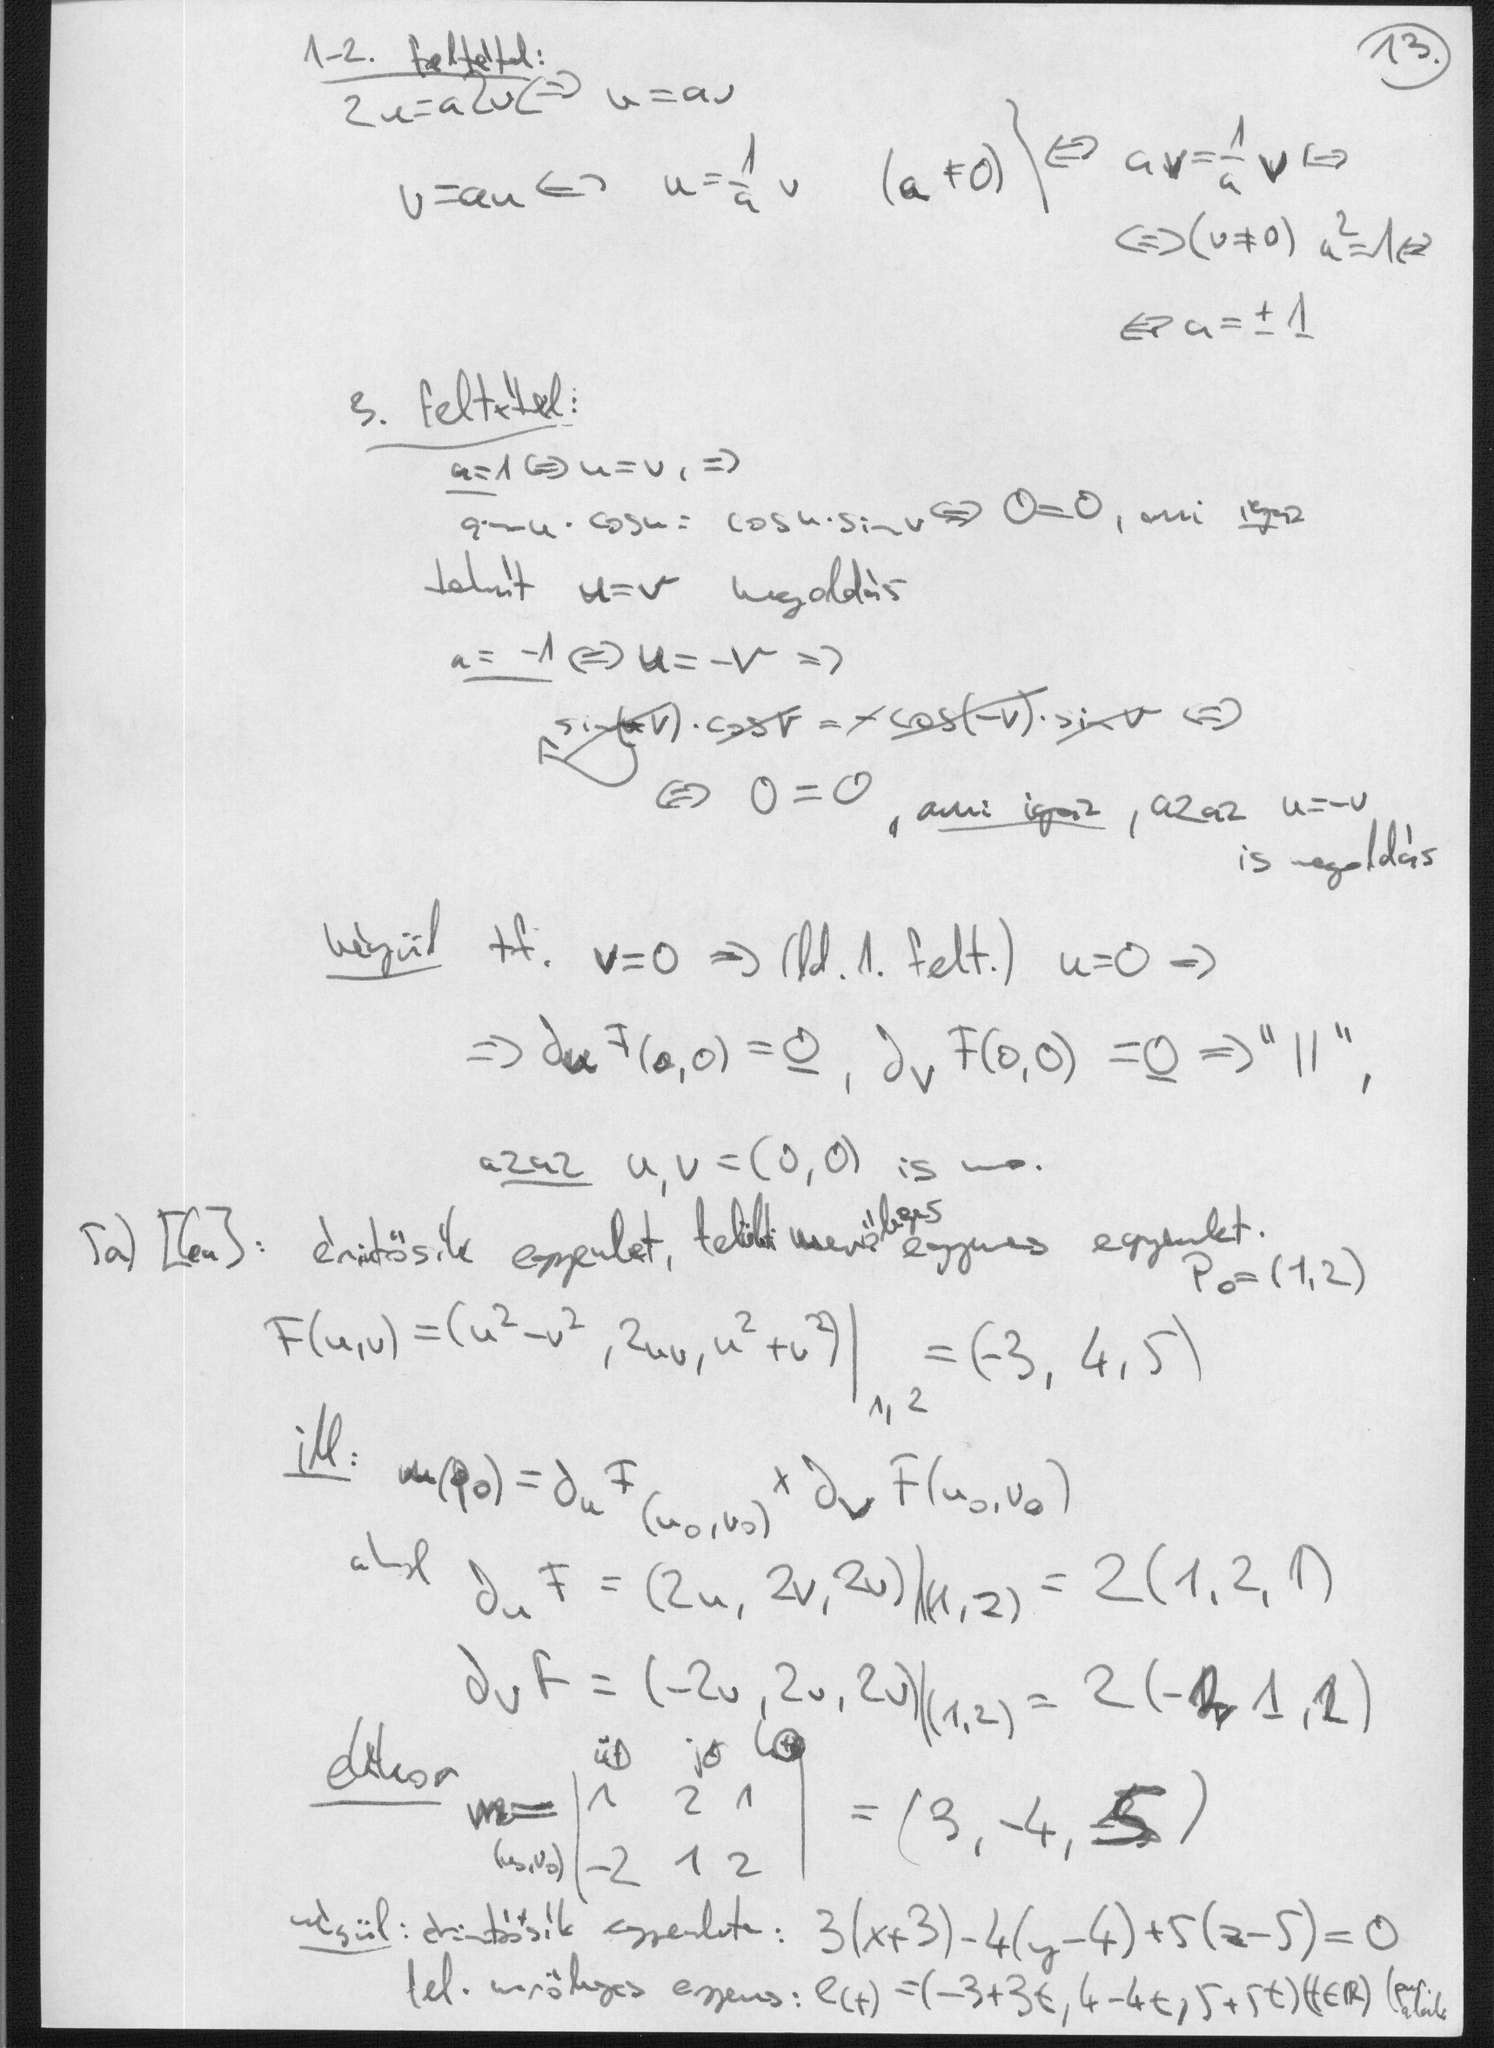 13.
1-2. feltétel:
2u=a2v ⇔ u=av
v=au ⇔ u=1/a v (a≠0) } ⇔ av=1/a v ⇔
⇔ (v≠0) a²=1 ⇔
⇔ a=±1
3. feltétel:
a=1 ⇔ u=v, ⇒
sin u · cos u = cos u · sin v ⇔ 0=0, ami igaz
tehát u=v megoldás
a=-1 ⇔ u=-v ⇒
sin(-v)·cos v = -cos(-v)·sin v ⇔
⇔ 0=0, ami igaz, azaz u=-v
is megoldás
végül tf. v=0 ⇒ (ld. 1. felt.) u=0 ⇒
⇒ ∂u F(0,0) = 0, ∂v F(0,0) = 0 ⇒ "||",
azaz u,v=(0,0) is mo.
5a) : érintősík egyenlet, felületi merőleges egyenes egyenlet.
P₀=(1,2)
F(u,v) = (u²-v², 2uv, u²+v²)|1,2 = (-3, 4, 5)
itt: m(p₀) = ∂u F(u₀,v₀) × ∂v F(u₀,v₀)
ahol ∂u F = (2u, 2v, 2u)|(1,2) = 2(1, 2, 1)
∂v F = (-2v, 2u, 2v)|(1,2) = 2(-2, 1, 2)
ekkor i⊕ j⊖ k⊕
m(u₀,v₀) = | 1 2 1 | = (3, -4, 5)
| -2 1 2 |
végül: érintősík egyenlete: 3(x+3)-4(y-4)+5(z-5)=0
fel. merőleges egyenes: e(t) = (-3+3t, 4-4t, 5+5t) (t∈ℝ)